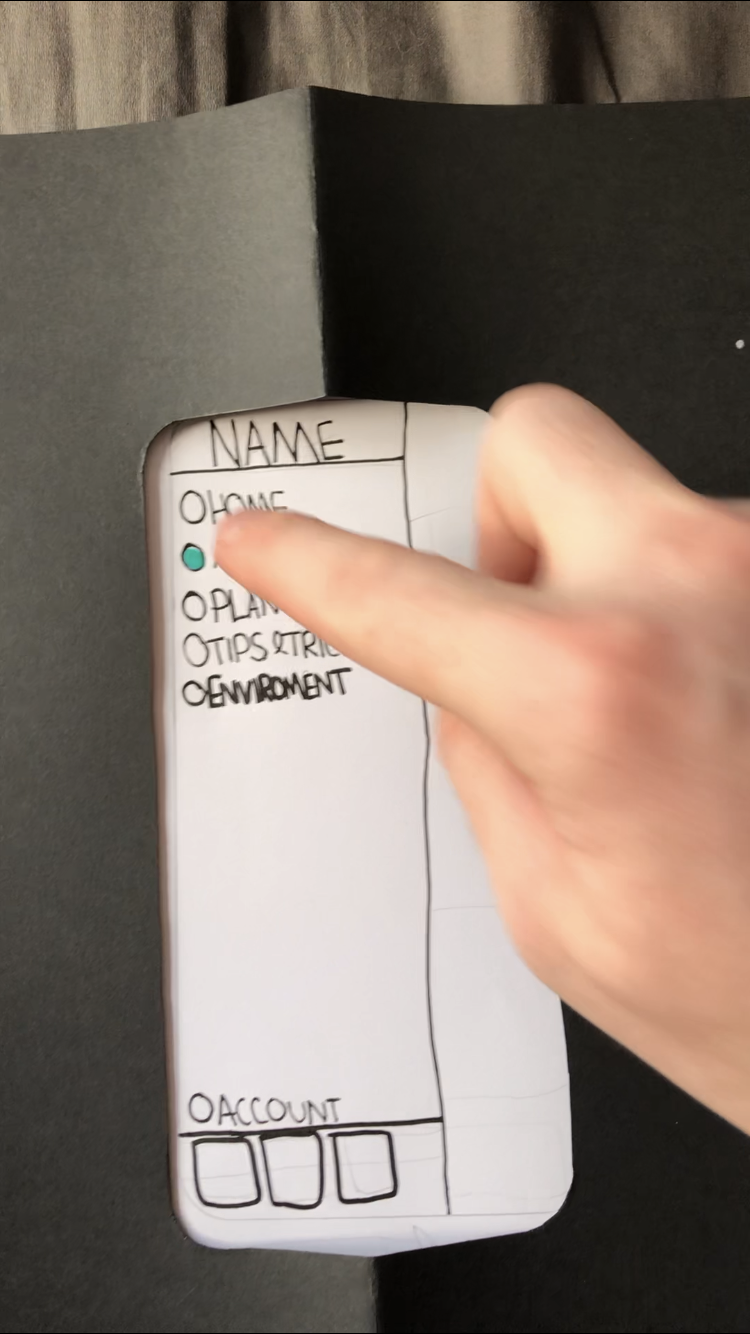 NAME
HOME
PLAN
TIPS &TRIC
ENVIROMENT
ACCOUNT